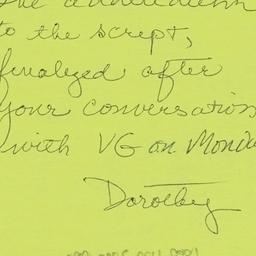 to the script,
finalized after
your conversation
with VG on Monda
Dorothy